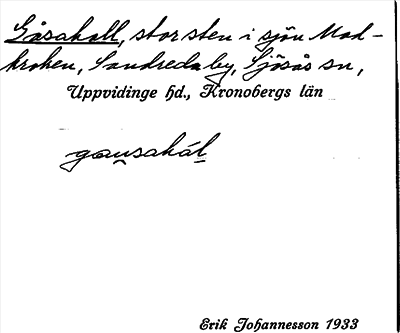 Gåsakall, stor sten i sjön Mad-
kroken, Sandreda by, Sjösås sn,
Uppvidinge hd., Kronobergs län
gau̯sakál
Erik Johannesson 1933